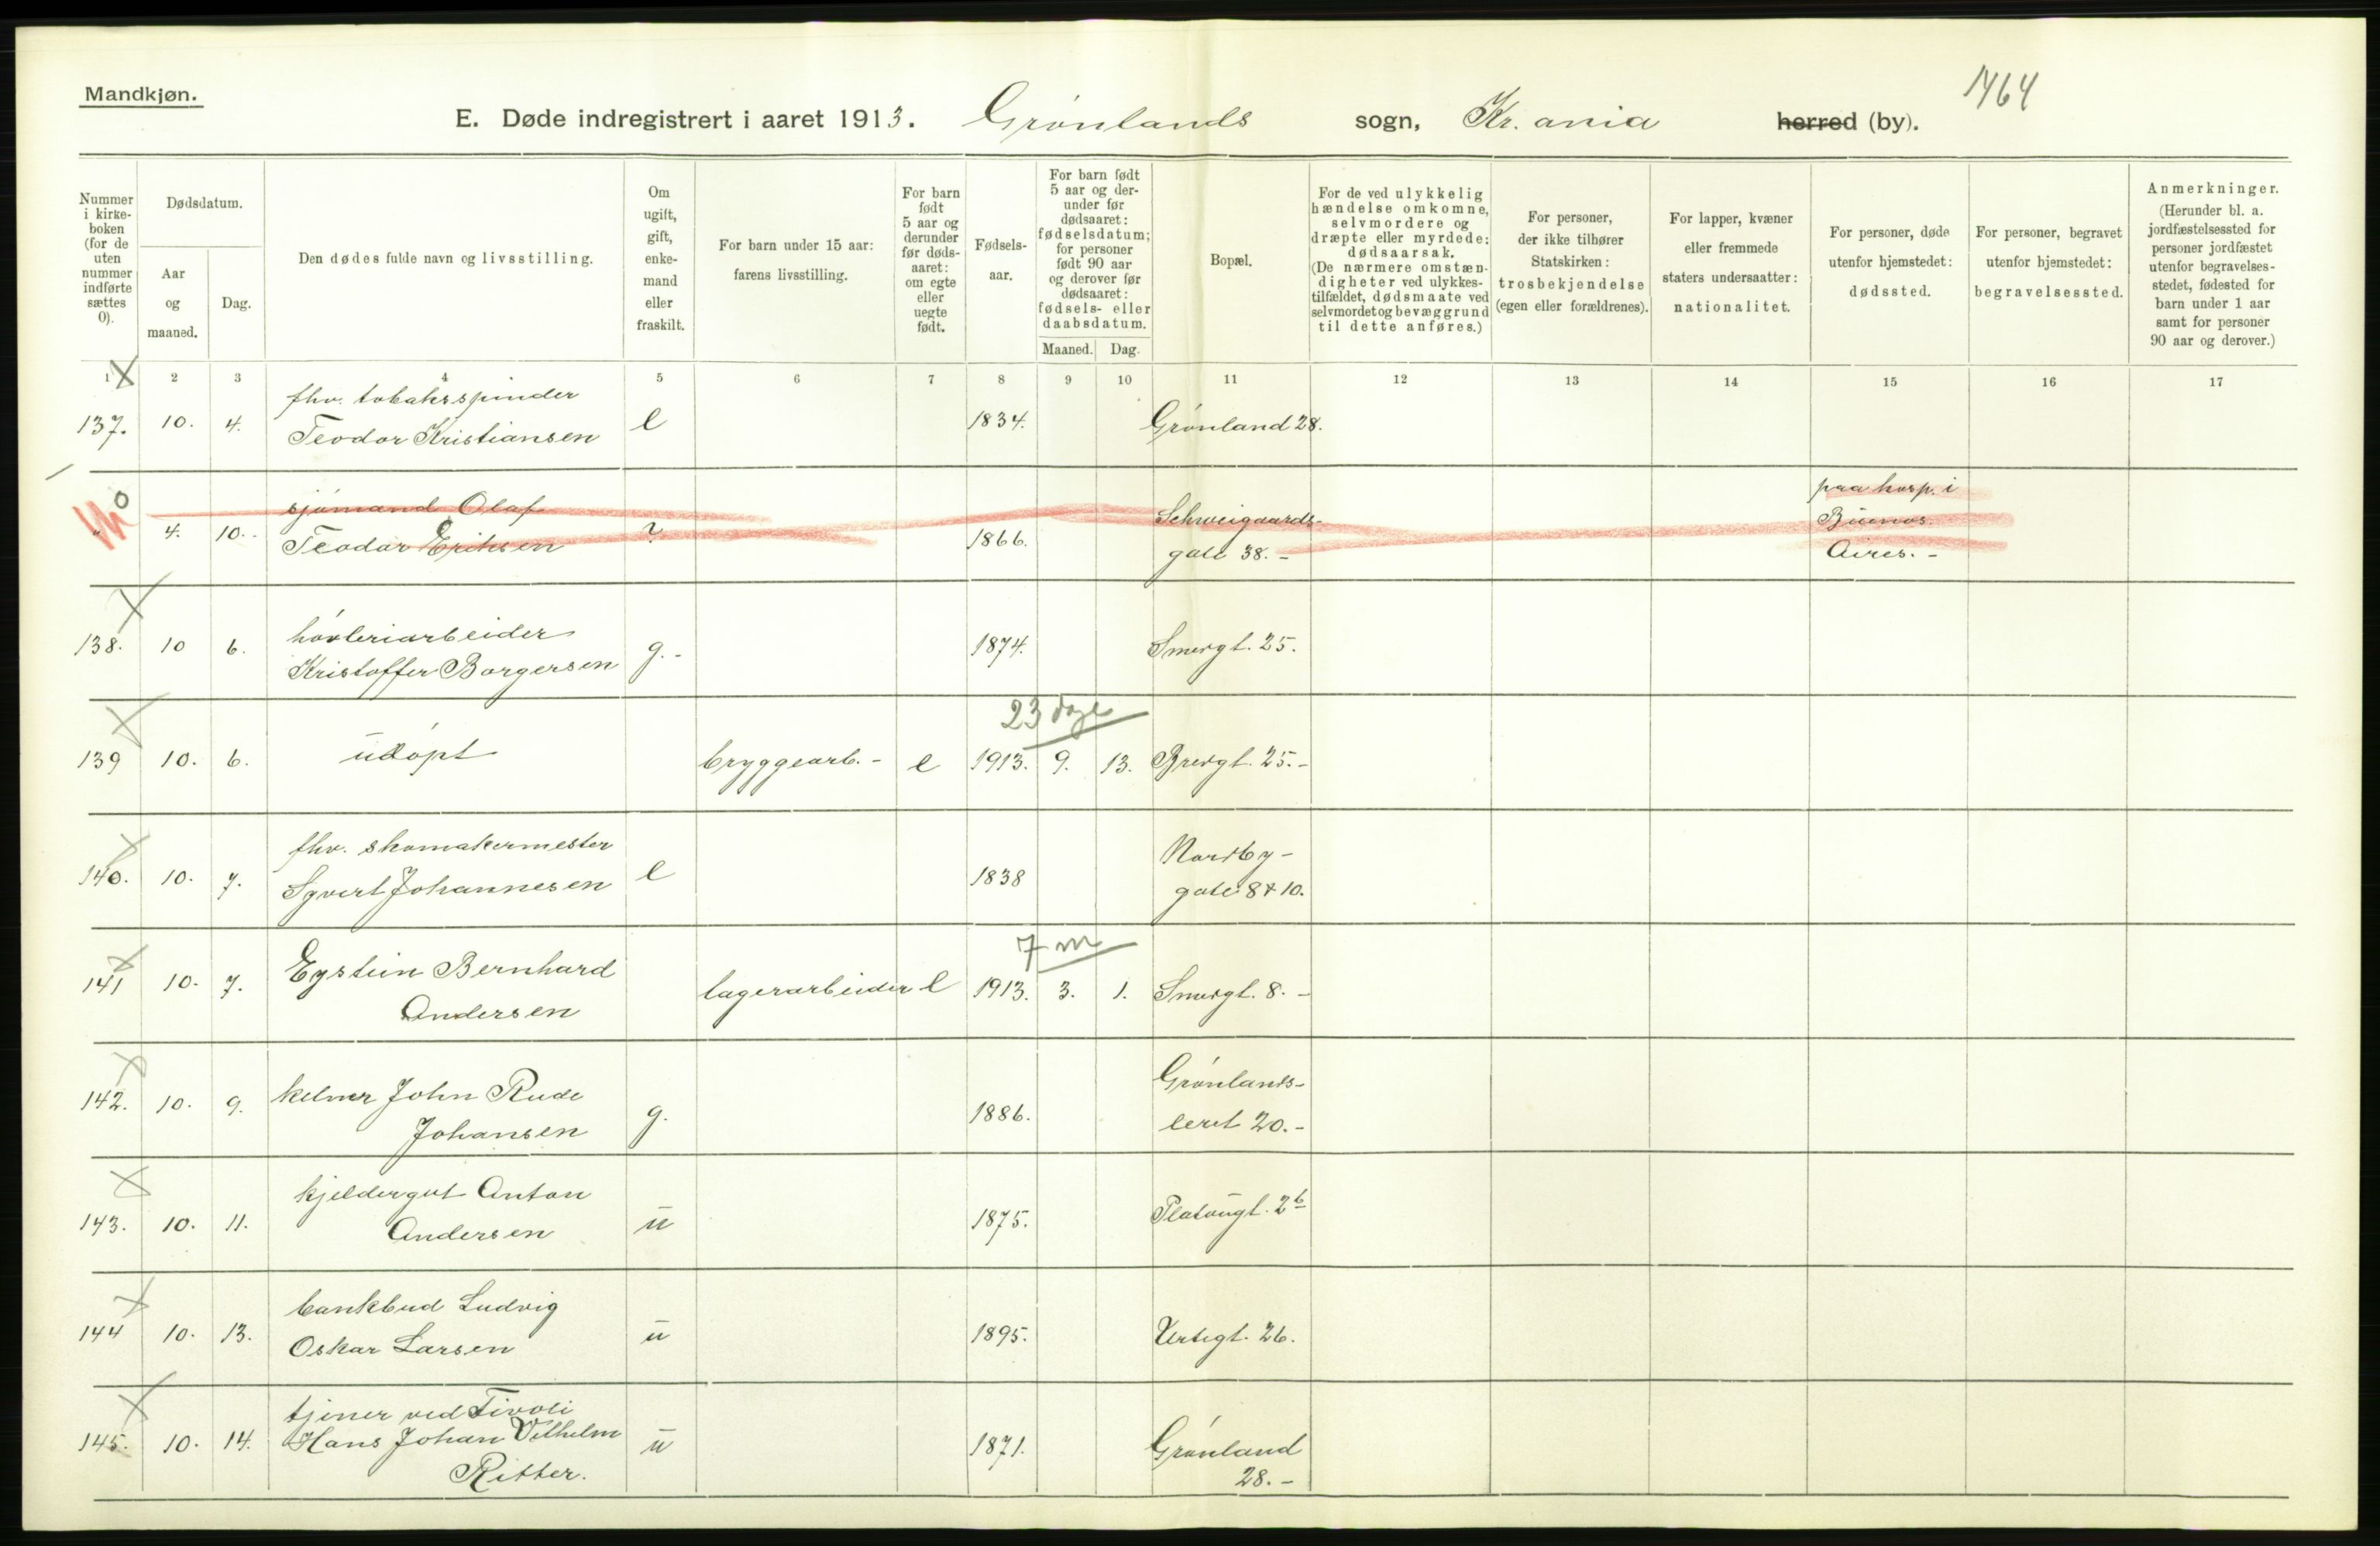 Mandkjøn.
1464
E. Døde indregistrert i aaret 1913. Grønlands sogn, Kr.ania herred (by).
Nummer i kirke-boken (for de uten nummer indførte sættes 0).
Dødsdatum.
Aar og maaned.
Dag.
Den dødes fulde navn og livsstilling.
Om ugift, gift, enke-mand eller fraskilt.
For barn under 15 aar: farens livsstilling.
For barn født 5 aar og derunder før døds-aaret: om egte eller uegte født.
Fødsels-aar.
For barn født 5 aar og der-under før dødsaaret: fødselsdatum; for personer født 90 aar og derover før dødsaaret: fødsels- eller daabsdatum.
Maaned.
Dag.
Bopæl.
For de ved ulykkelig hændelse omkomne, selvmordere og dræpte eller myrdede: dødsaarsak. (De nærmere omstæn-digheter ved ulykkes-tilfældet, dødsmaate ved selvmordet og bevæggrund til dette anføres.)
For personer, der ikke tilhører Statskirken: trosbekjendelse (egen eller forældrenes).
For lapper, kvæner eller fremmede staters undersaatter: nationalitet.
For personer, døde utenfor hjemstedet: dødssted.
For personer, begravet utenfor hjemstedet: begravelsessted.
Anmerkninger. (Herunder bl. a. jordfæstelsessted for personer jordfæstet utenfor begravelses-stedet, fødested for barn under 1 aar samt for personer 90 aar og derover.)
1 2 3 4 5 6 7 8 9 10 11 12 13 14 15 16 17
fhv. tobaksspinder
137. 10. 4. Teodor Kristiansen e 1834. Grønland 28.
0 sjømand Olaf Schweigaards- paa hosp. i
" 4. 10. Teodor Eriksen ? 1866. gate 38. - Buenos Aires. -
høvleriarbeider
138. 10 6. Kristoffer Borgersen g. - 1874. Smedgt. 25.
23 dage
139 10. 6. udøpt bryggearb. - e 1913. 9. 13. Bredgt. 25. -
fhv. skomakermester Nordby-
140. 10. 7. Sgvert Johannesen e 1838 gate 8 & 10.
7 m
141 10. 7. Eystein Bernhard Andersen lagerarbeider e 1913. 3. 1. Smedgt. 8. -
142. 10. 9. kelner John Rude Grønlands-
Johansen g. 1886. leret 20. -
kjeldergut Anton
143. 10. 11. Andersen u 1875. Platougt. 2b
bankbud Ludvig
144 10. 13. Oskar Larsen u 1895. Urtegt. 26.
tjener ved Tivoli
145. 10. 14. Hans Johan Vilhelm u 1871. Grønland
Ritter. 28. -